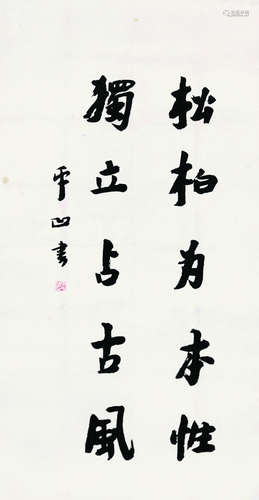 松柏为本性
獨立占古風
平凹書